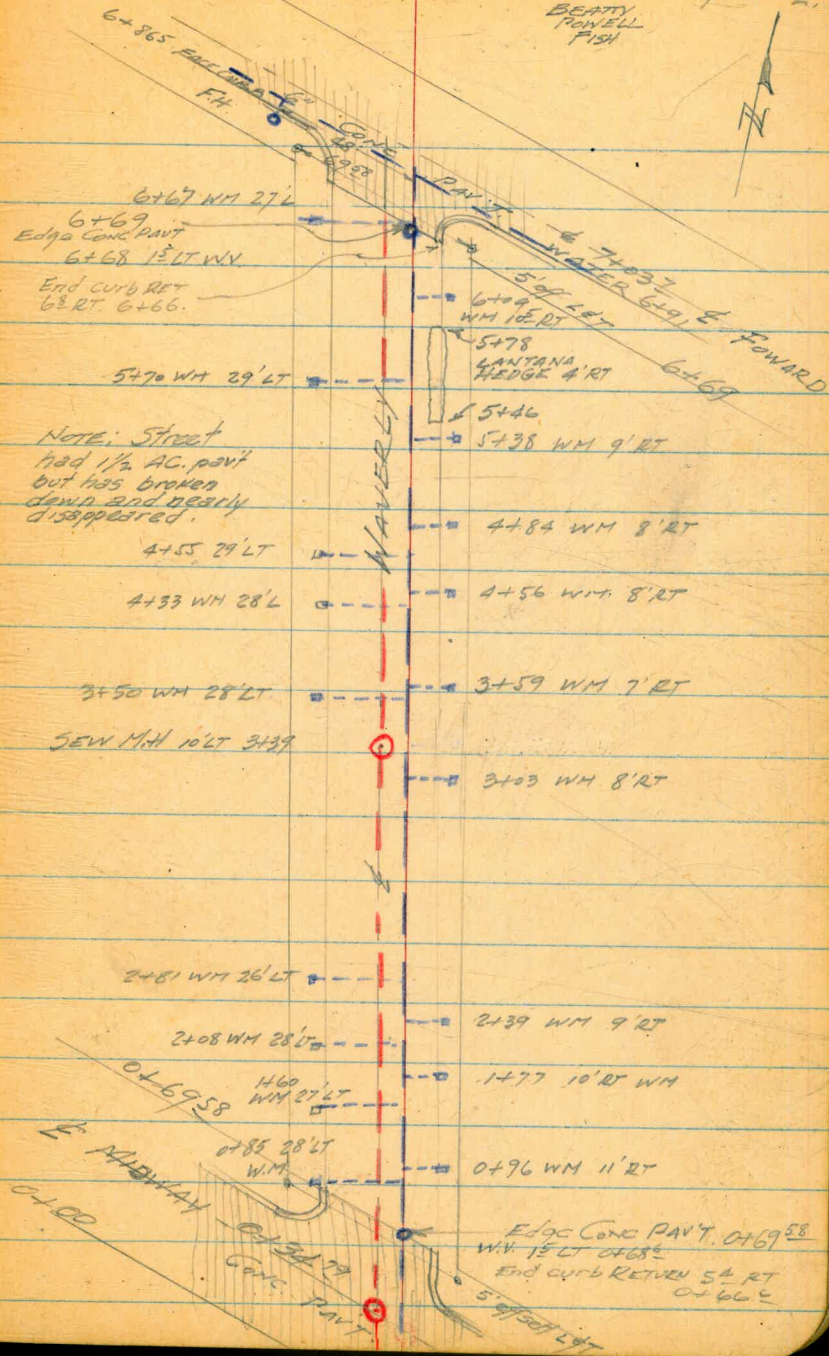 BEATTY
POWELL
FISH
N
6+865 FACE CURB
F.H.
6"
CONC
48'
6958
PAV'T.
6+67 WM 27'L
6+69
Edge CONC PAVT
6+68 1⁵ LT WV
End curb RET
6⁸ RT. 6+66.
℄ 7+037
WATER 6+91
5' off L&T
℄ FOWARD
6+69
6+09
WM 10⁵ RT
5+78
LANTANA
HEDGE 4' RT
5+70 WM 29' LT
5+46
5+38 WM 9' RT
NOTE: Street
had 1½ AC. pav't
but has broken
down and nearly
disappeared.
WAVERLY
4+84 WM 8' RT
4+55 29' LT
4+56 WM. 8' RT
4+33 WM 28' L
3+59 WM 7' RT
3+50 WM 28' LT
SEW M.H 10' LT 3+39
3+03 WM 8' RT
℄
2+81 WM 26' LT
2+39 WM 9' RT
2+08 WM 28' LT
1+77 10' RT WM
1+60
WM 27' LT
0+69⁵⁸
0+85 28' LT
W.M
0+96 WM 11' RT
℄ MIDWAY - 0+34⁷⁹
0+00
CONC. PAV'T
Edge CONC PAV'T. 0+69⁵⁸
W.V. 1⁵ LT 0+68⁶
End curb RETURN 5⁴ RT
0+66⁶
5' offset L&T